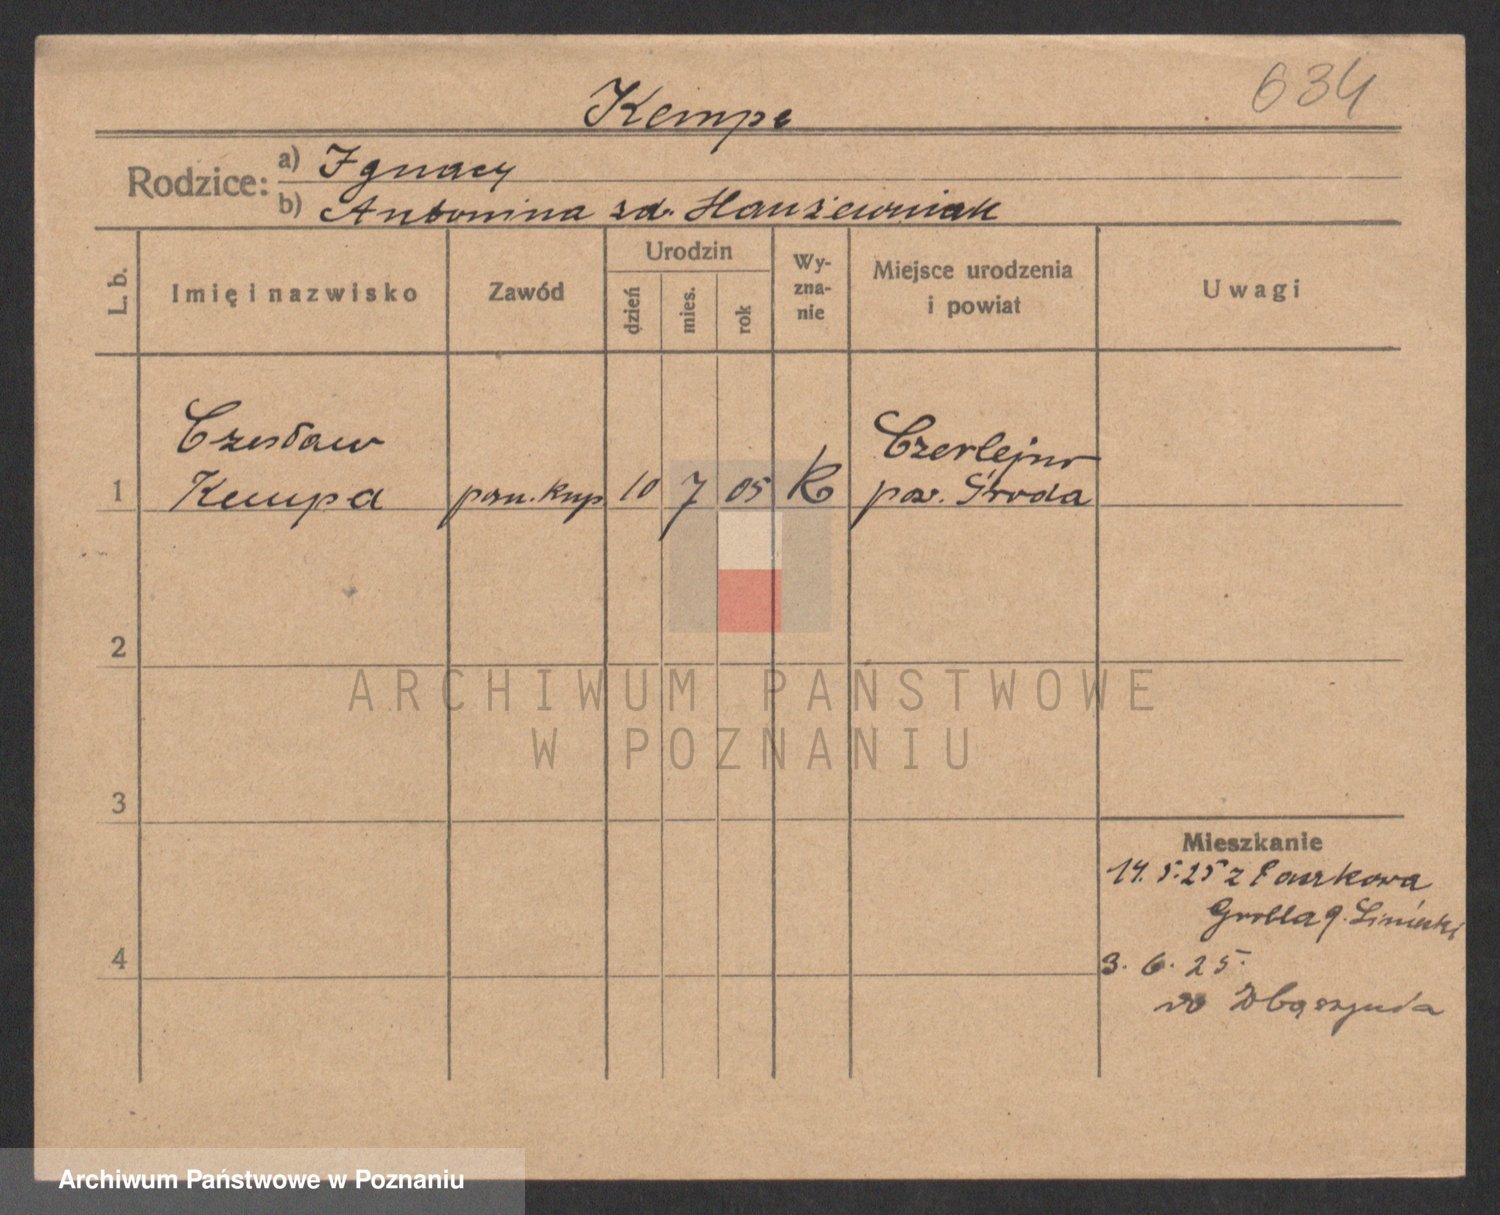 634
Kempa
Rodzice: a) Ignacy
b) Antonina zd. Hanżewniak
L. b.
Imię i nazwisko
Zawód
Urodzin
dzień
mies.
rok
Wy-
zna-
nie
Miejsce urodzenia
i powiat
Uwagi
Czesław Czerlejno
1 Kempa pom. kup. 10 7 05 K pow. Środa
2
ARCHIWUM PAŃSTWOWE
W POZNANIU
3
Mieszkanie
14.5.25 z
Grobla 9.
4
3. 6. 25.
do Zbąszynia
Archiwum Państwowe w Poznaniu